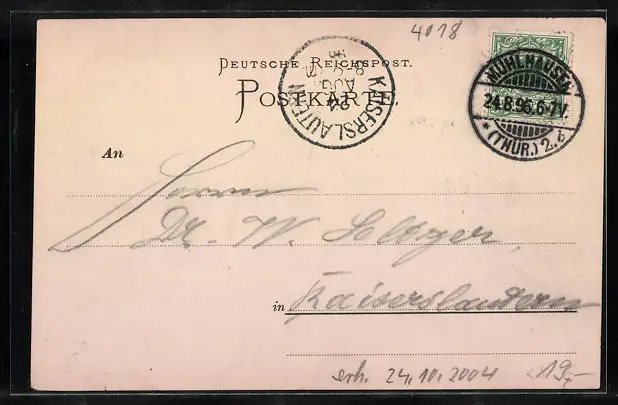 4018
DEUTSCHE REICHSPOST.
POSTKARTE.
MÜHLHAUSEN
24.8.96.6-7V.
*(THÜR.) 2.b
KAISERSLAUTERN
24
AUG
An
Herrn
Dr. W. Seltzer,
in Kaiserslautern
erh. 24.10.2004
19,-